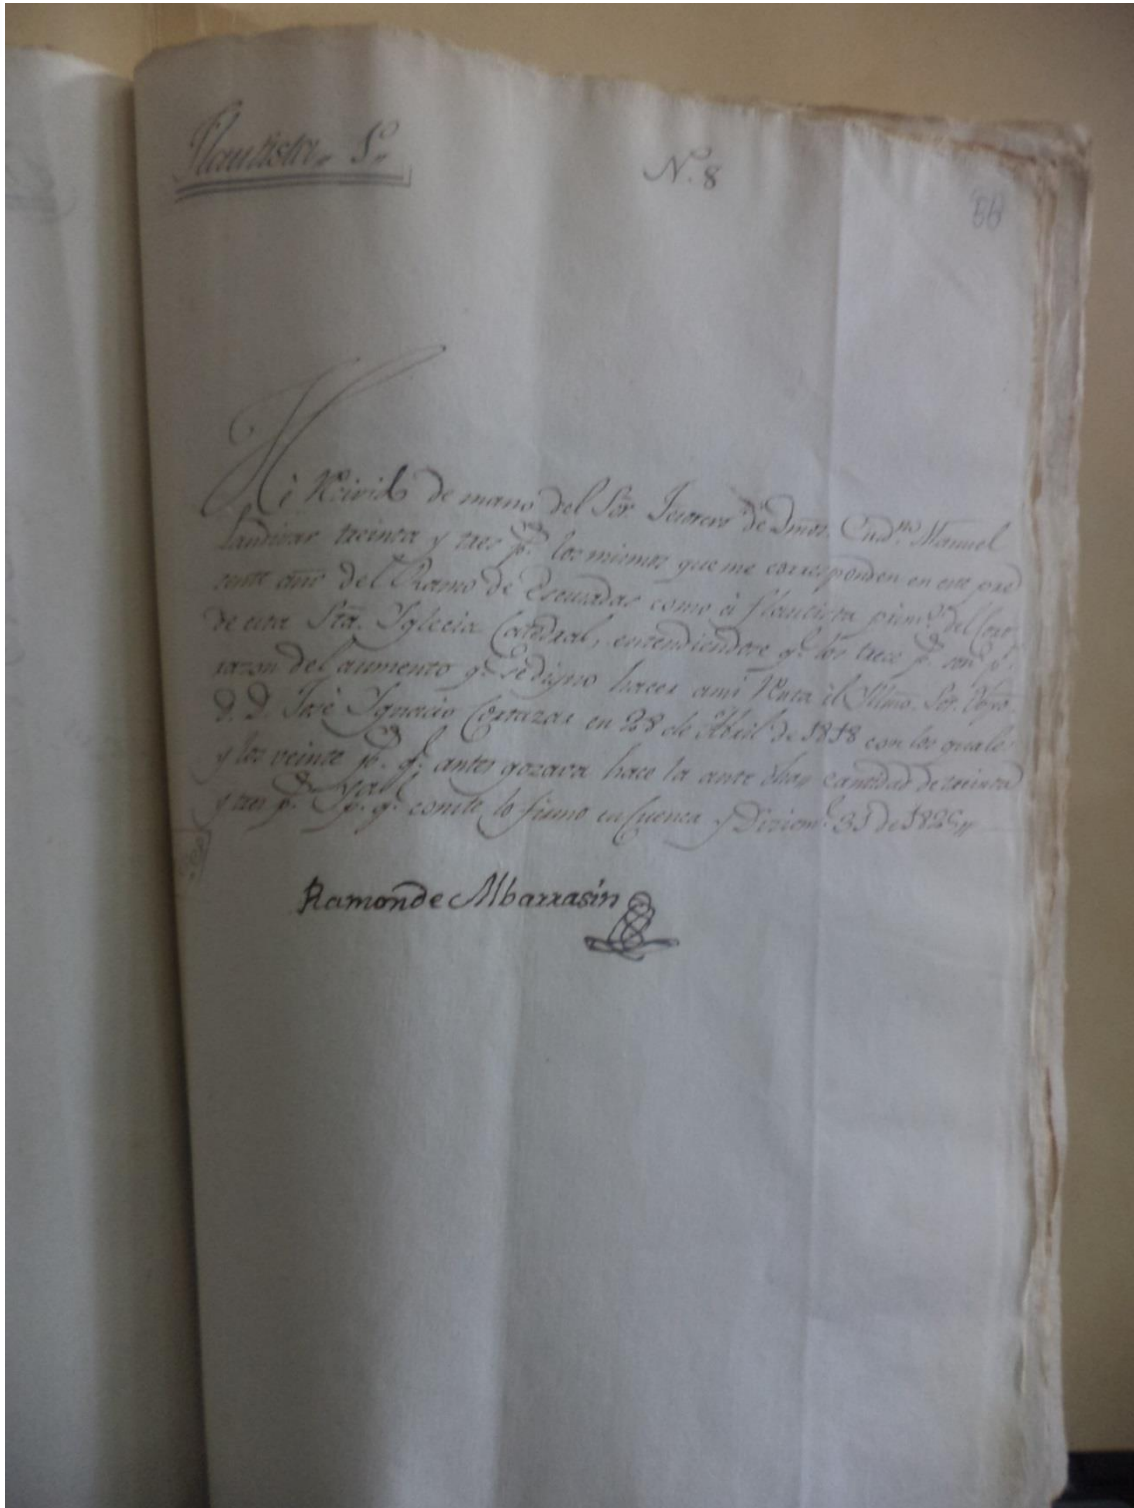 Flautista S.
N.º 8
He Recivido de mano del Sõr. Tesorero de Dmos. Ciud.no Manuel
Landivar treinta y tres p.s los mismos que me corresponden en este pre
sente año del Ramo de Escusadas como à flautista prim.o del coro
de esta Sta. Yglecia Catedral, entendiendose q.e los trece p.s son p.r
razon del aumento q.e se digno hacer ami Renta èl Illmo. Sor. Obpo.
D. D. José Ygnacio Cortazar en 28 de Abril de 1818 con los quales
y los veinte p.s q.e antes gozava hace la ante dha cantidad de treinta
y tres p.s y p.a q.e conste lo firmo en Cuenca y Diziem.e 31 de
Ramon de Albarrasin